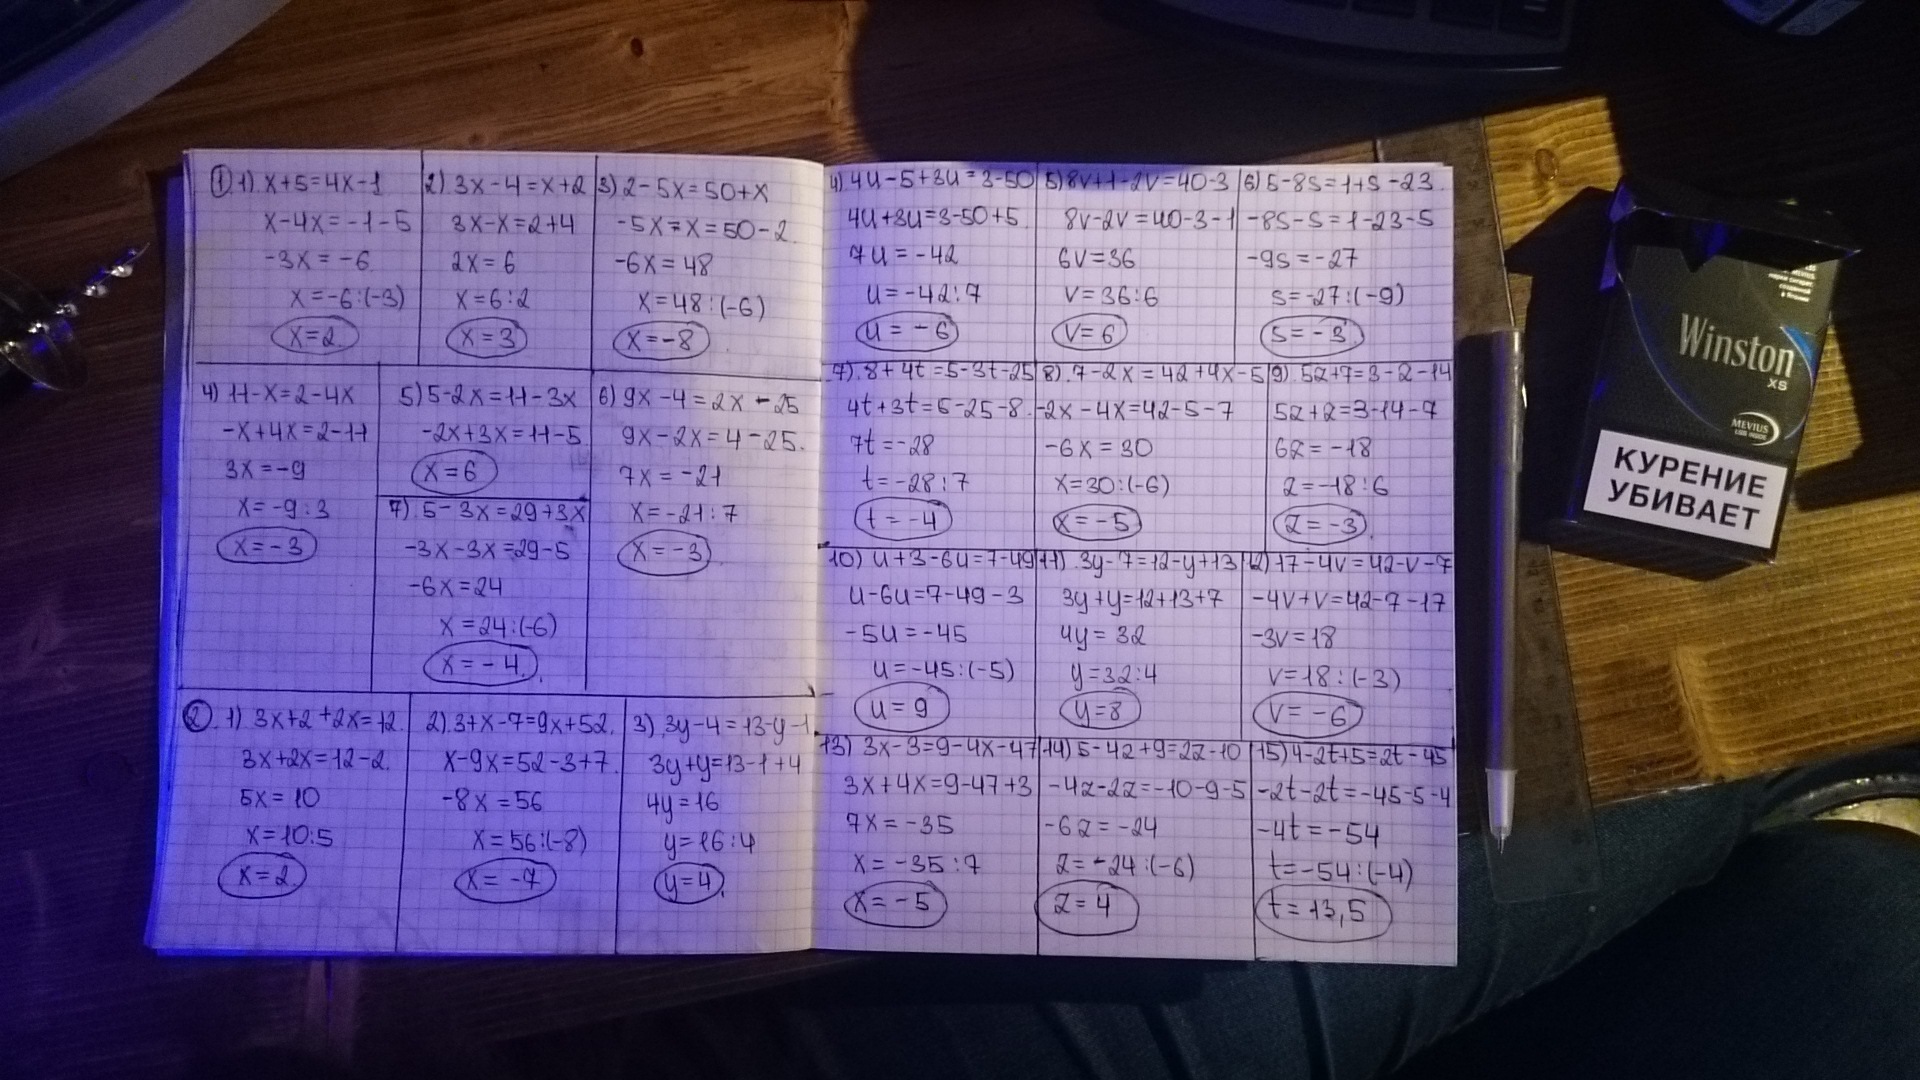 ① 1) x+5=4x-1
x-4x=-1-5
-3x=-6
x=-6:(-3)
x=2
2) 3x-4=x+2
3x-x=2+4
2x=6
x=6:2
x=3
3) 2-5x=50+x
-5x-x=50-2
-6x=48
x=48:(-6)
x=-8
4) 11-x=2-4x
-x+4x=2-11
3x=-9
x=-9:3
x=-3
5) 5-2x=11-3x
-2x+3x=11-5
x=6
6) 9x-4=2x-25
9x-2x=4-25.
7x=-21
x=-21:7
x=-3
7) 5-3x=29+3x
-3x-3x=29-5
-6x=24
x=24:(-6)
x=-4
② 1) 3x+2+2x=12
3x+2x=12-2
5x=10
x=10:5
x=2
2) 3+x-7=9x+52
x-9x=52-3+7
-8x=56
x=56:(-8)
x=-7
3) 3y-4=13-y-1
3y+y=13-1+4
4y=16
y=16:4
y=4
4) 4u-5+3u=3-50
4u+3u=3-50+5
7u=-42
u=-42:7
u=-6
5) 8v+1-2v=40-3
8v-2v=40-3-1
6v=36
v=36:6
v=6
6) 5-8s=1+s-23
-8s-s=1-23-5
-9s=-27
s=-27:(-9)
s=-3
7) 8+4t=5-3t-25
4t+3t=5-25-8
7t=-28
t=-28:7
t=-4
8) 7-2x=42+4x-5
-2x-4x=42-5-7
-6x=30
x=30:(-6)
x=-5
9) 5z+7=3-z-14
5z+z=3-14-7
6z=-18
z=-18:6
z=-3
10) u+3-6u=7-49
u-6u=7-49-3
-5u=-45
u=-45:(-5)
u=9
11) 3y-7=12-y+13
3y+y=12+13+7
4y=32
y=32:4
y=8
12) 17-4v=42-v-7
-4v+v=42-7-17
-3v=18
v=18:(-3)
v=-6
13) 3x-3=9-4x-47
3x+4x=9-47+3
7x=-35
x=-35:7
x=-5
14) 5-4z+9=2z-10
-4z-2z=-10-9-5
-6z=-24
z=-24:(-6)
z=4
15) 4-2t+5=2t-45
-2t-2t=-45-5-4
-4t=-54
t=-54:(-4)
t=13,5
Winston
XS
MEVIUS
КУРЕНИЕ
УБИВАЕТ